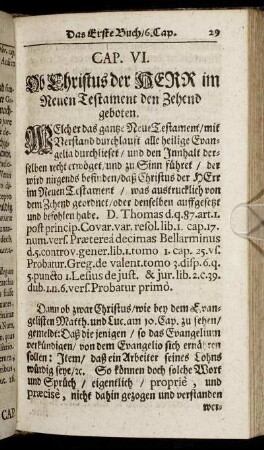 Das Erste Buch/6. Cap. 29
CAP. VI.
Ob Christus der HERR im
Neuen Testament den Zehend
geboten.
Welcher das gantze Neue Testament/mit
Verstand durchlaufft alle heilige Evan-
gelia durchliest/und den Innhalt der-
selben recht erwöget/und zu Sinn führet / der
wird nirgends befinden/daß Christus der HErr
im Neuen Testament / was austrucklich von
dem Zehend geordnet/oder denselben auffgesetzt
und befohlen habe. D. Thomas d.q.87.art.1.
post princip. Covar. var. resol. lib. 1. cap. 17.
num. verf. Præterea decimas Bellarminus
d.5. controv. gener. lib. 1. tomo 1. cap. 25. vf.
Probatur. Greg. de valent. tomo 3. disp. 6. q.
5. puncto 1. Lesius de just. & jur. lib. 2. c. 39.
dub. 1. n. 6. verf. Probatur primò.
Dann ob zwar Christus/wie bey dem Evan-
gelisten Matth. und Luc. am 10. Cap. zu sehen/
gemeldt: Daß die jenigen / so das Evangelium
verkündigen/ von dem Evangelio sich ernähren
sollen: Item/ daß ein Arbeiter seines Lohns
würdig seye/ꝛc. So können doch solche Wort
und Sprüch / eigentlich / propriè, und
præcisè, nicht dahin gezogen und verstanden
wer-
CAP